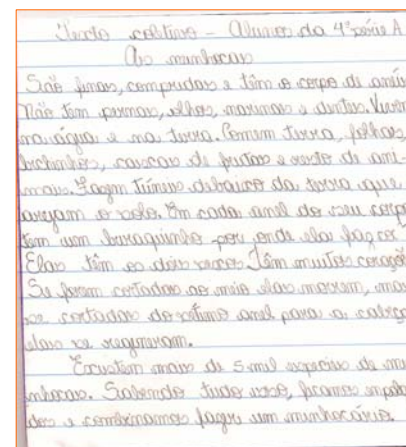 Texto coletivo - Alunos da 4ª série A
As minhocas
São finas, compridas e têm o corpo de anéis
Não tem pernas, olhos, narinas e dentes. Vivem
na água e na terra. Comem terra, folhas,
bichinhos, cascas de frutas e resto de ani-
mais. Fazem túneis debaixo da terra que
arejam o solo. Em cada anel do seu corpo
tem um buraquinho por onde elas faz cocô
Elas têm os dois sexos. Têm muitos coraçõe
Se forem cortadas ao meio elas morrem, mas
se cortadas do sétimo anel para a cabeça
elas se regeneram.
Existem mais de 5 mil espécies de mi
nhocas. Sabendo tudo isso, ficamos empolga
dos e combinamos fazer um minhocário.